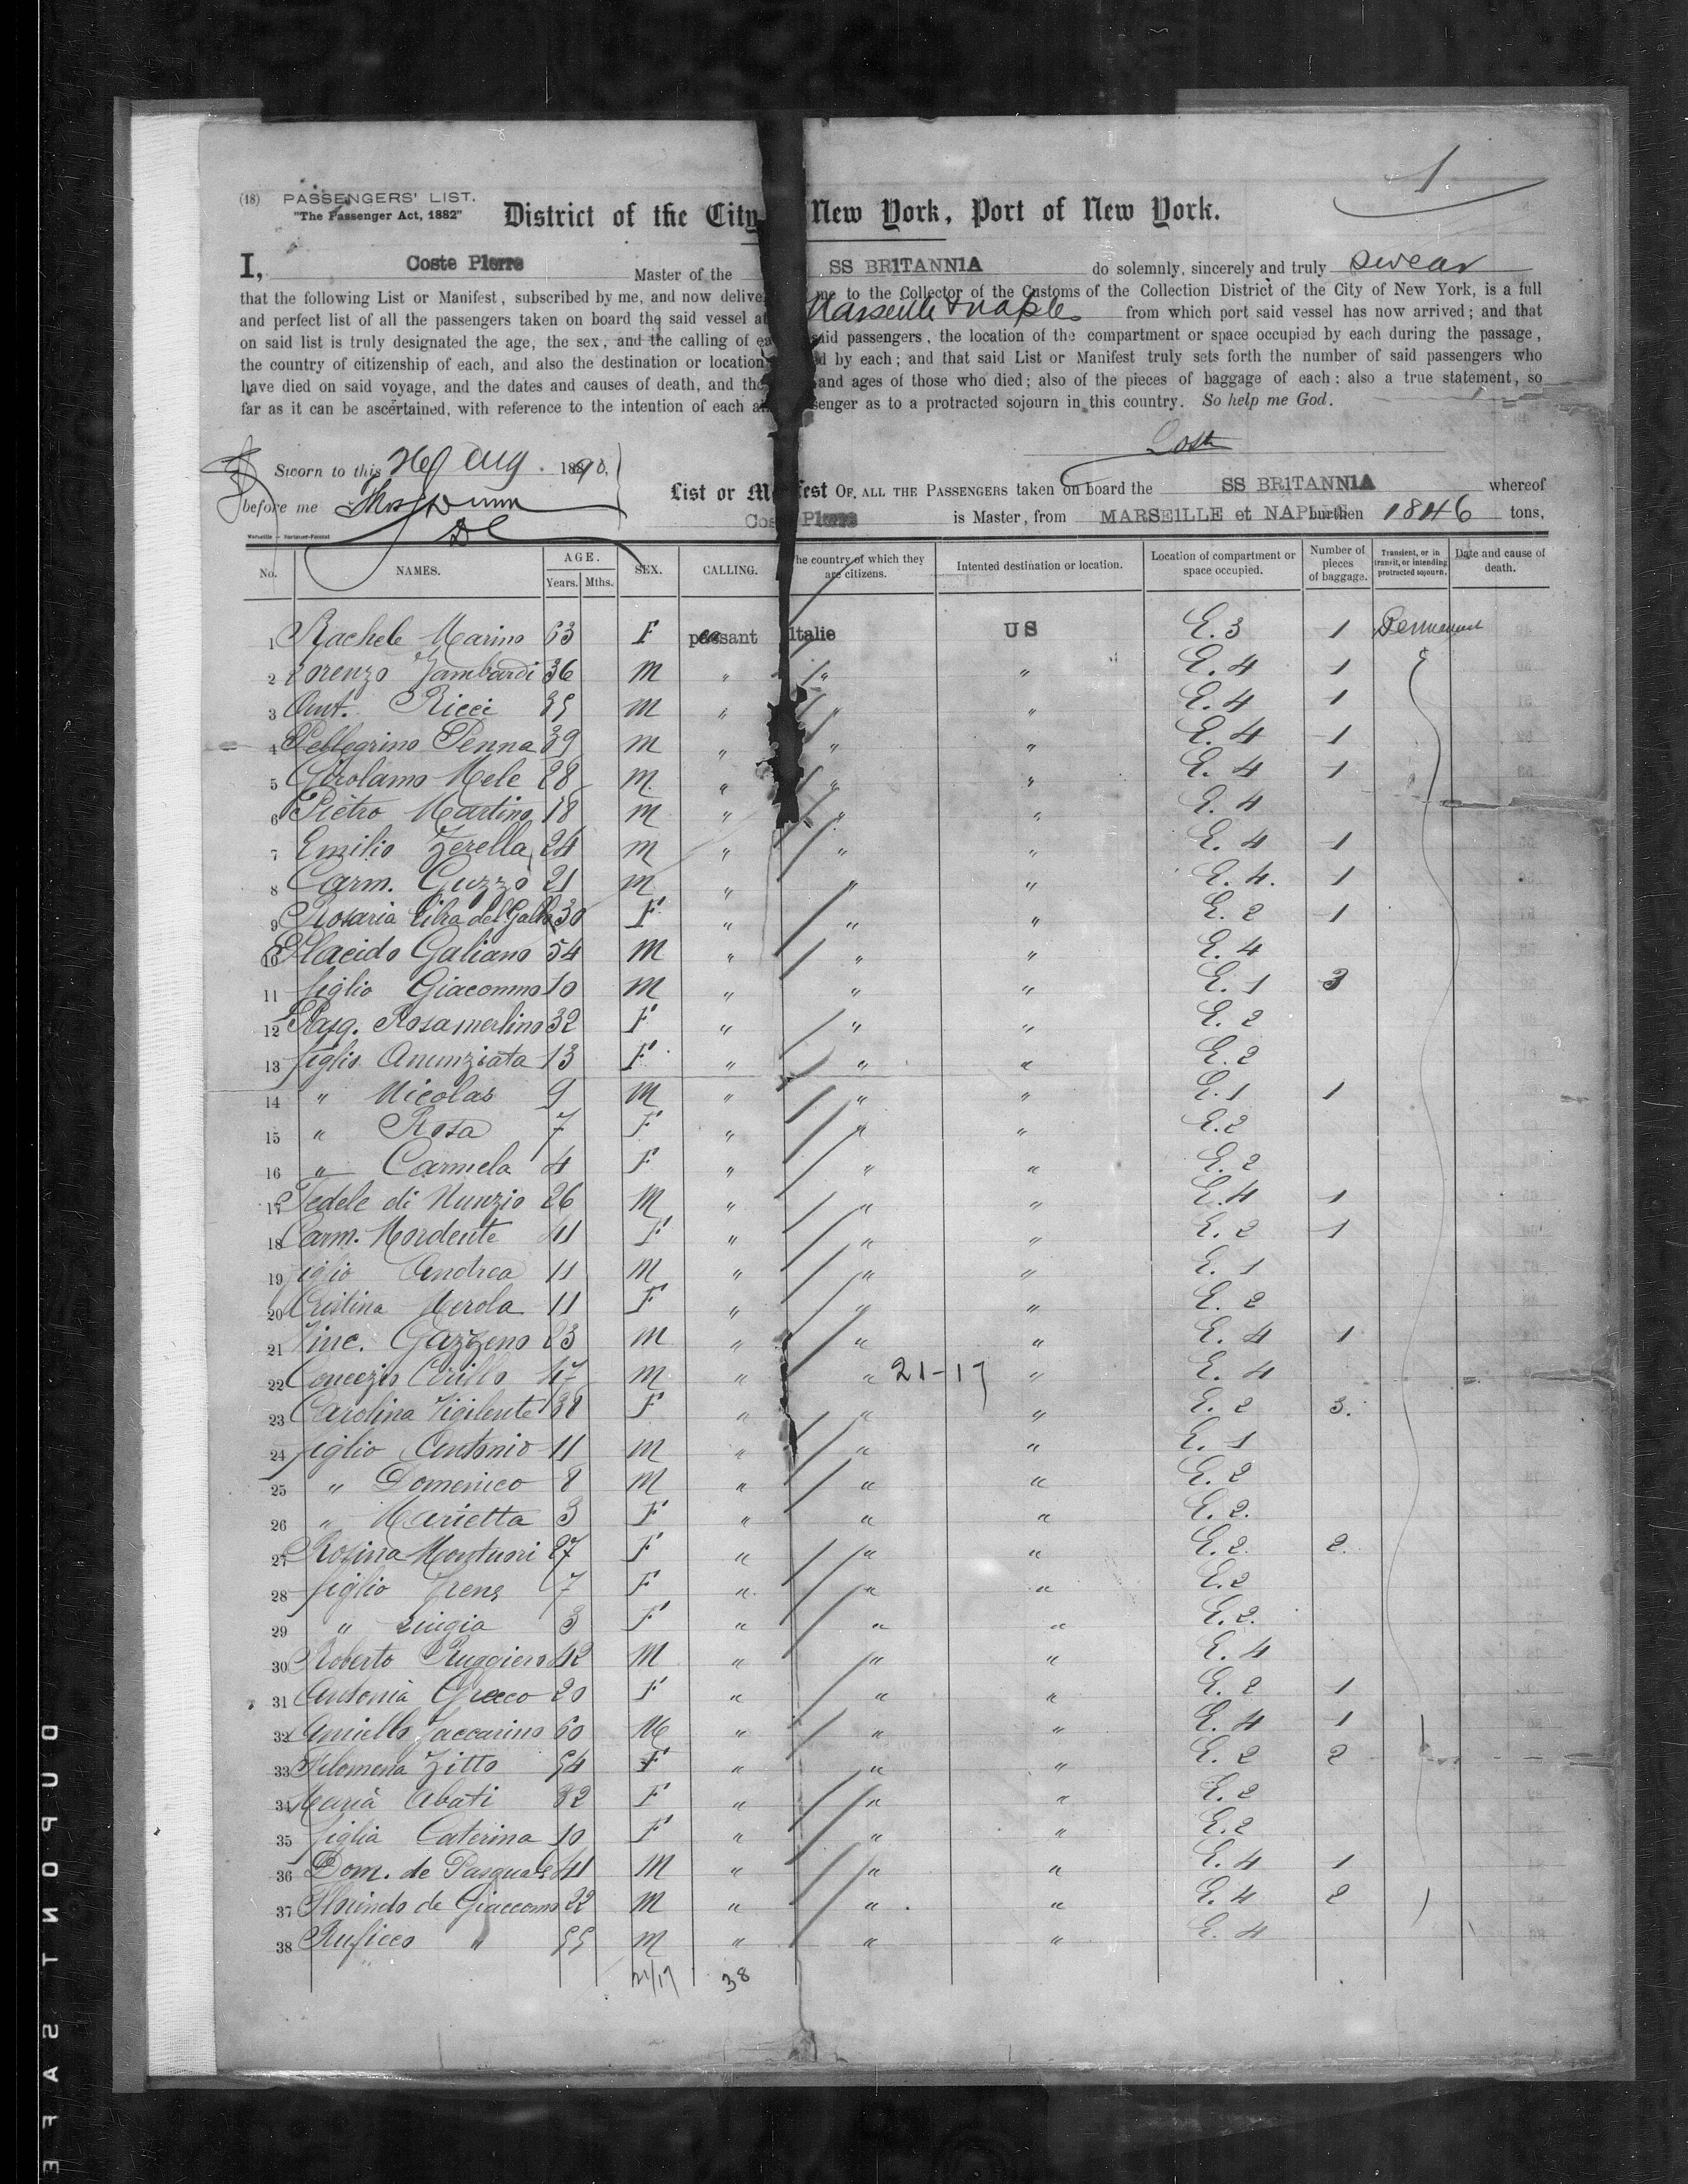 1
(18) PASSENGERS' LIST.
"The Passenger Act, 1882"
District of the City New York, Port of New York.
I, Coste Pierre Master of the SS BRITANNIA do solemnly, sincerely and truly swear
that the following List or Manifest, subscribed by me, and now delive me to the Collector of the Customs of the Collection District of the City of New York, is a full
and perfect list of all the passengers taken on board the said vessel at Marseille & Naples from which port said vessel has now arrived; and that
on said list is truly designated the age, the sex, and the calling of ea said passengers, the location of the compartment or space occupied by each during the passage,
the country of citizenship of each, and also the destination or location d by each; and that said List or Manifest truly sets forth the number of said passengers who
have died on said voyage, and the dates and causes of death, and the and ages of those who died; also of the pieces of baggage of each: also a true statement, so
far as it can be ascertained, with reference to the intention of each a senger as to a protracted sojourn in this country. So help me God.
Coste
Sworn to this 26 Aug. 1890,
before me Thos Dunn
List or Manifest OF, ALL THE PASSENGERS taken on board the SS BRITANNIA whereof
Coste Pierre is Master, from MARSEILLE et NAPLES burthen 1846 tons,
No. NAMES. AGE. Years. Mths. SEX. CALLING. The country of which they are citizens. Intented destination or location. Location of compartment or space occupied. Number of pieces of baggage. Transient, or in transit, or intending protracted sojourn. Date and cause of death.
1 Rachele Marino 63 F peasant Italie US E.3 1 Permanent
2 Lorenzo Zambardi 36 M " " " E. 4 1
3 Ant. Ricci 35 M " " " E. 4 1
4 Pellegrino Penna 39 M " " " E. 4 1
5 Girolamo Mele 28 M. " " " E. 4 1
6 Pietro Martino 18 M " " " E. 4
7 Emilio Zerella 24 M " " " E. 4 1
8 Carm. Guzzo 21 M " " " E. 4. 1
9 Rosaria del Gallo 30 F " " " E. 2 1
10 Placido Galiano 54 M " " " E. 4
11 figlio Giacomno 10 M " " " E. 1 3
12 Pasq. Rosamerlino 32 F " " " E. 2
13 figlio Anunziata 13 F " " " E. 2
14 " Nicolas 9 M " " " E. 1 1
15 " Rosa 7 F " " " E.2
16 " Carmela 4 F " " " E. 2
17 Fedele di Nunzio 26 M " " " E.4 1
18 Carm. Mordente 41 F " " " E. 2 1
19 figlio Andrea 11 M " " " E. 1
20 Cristina Merola 11 F " " " E. 2
21 Vinc. Gazzeno 23 M " " " E. 4 1
22 Concezio Cirillo 47 M " " 21-17 " E. 4
23 Carolina Vigilente 38 F " " " E. 2 3.
24 figlio Antonio 11 M " " " E. 1
25 " Domenico 8 M " " " E. 2
26 " Marietta 3 F " " " E. 2.
27 Rosina Montuori 27 F " " " E. 2. 2.
28 figlio Irene 7 F " " " E.2
29 " Luigia 3 F " " " E. 2.
30 Roberto Ruggiero 42 M " " " E. 4
31 Antonia Greco 20 F " " " E. 2 1
32 Aniello Zaccarino 60 M " " " E. 4 1
33 Filomena Zitto 54 F " " " E. 2 2
34 Maria Abati 32 F " " " E. 2
35 figlia Caterina 10 F " " " E.2
36 Dom. de Pasquale 41 M " " " E. 4 1
37 Florindo de Giaccomo 22 M " " " E. 4 2
38 Rufico " 55 M " " " E. 4
21/17 38
DUPONT SAFE